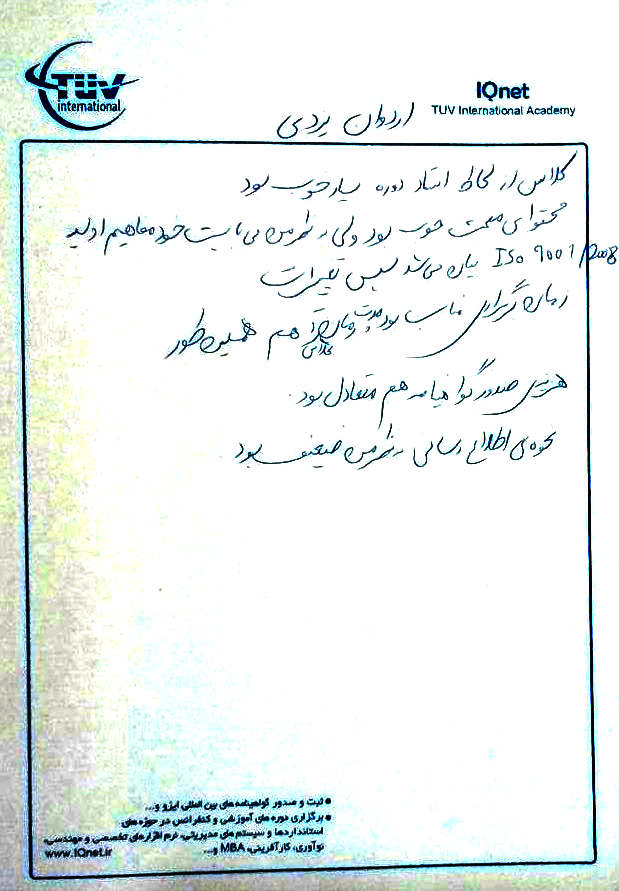 TÜV
international
IQnet
TUV International Academy
اردوان یزدی
کلاس از لحاظ استاد دوره بسیار خوب بود
محتوای صحبت خوب بود ولی بنظر من می بایست خود مفاهیم اولیه
ISO 9001/2008 بیان می شد سپس تغییرات
زمان برگزاری مناسب بود مدت زمان کلاس هم همین طور
هزینه‌ی صدور گواهینامه هم متعادل بود.
نحوه‌ی اطلاع رسانی بنظر من ضعیف بود.
• ثبت و صدور گواهینامه های بین المللی ایزو و...
• برگزاری دوره های آموزشی و کنفرانس در حوزه های
استانداردها و سیستم های مدیریتی، نرم افزارهای تخصصی و مهندسی،
نوآوری، کارآفرینی، MBA و...
www.IQnet.ir